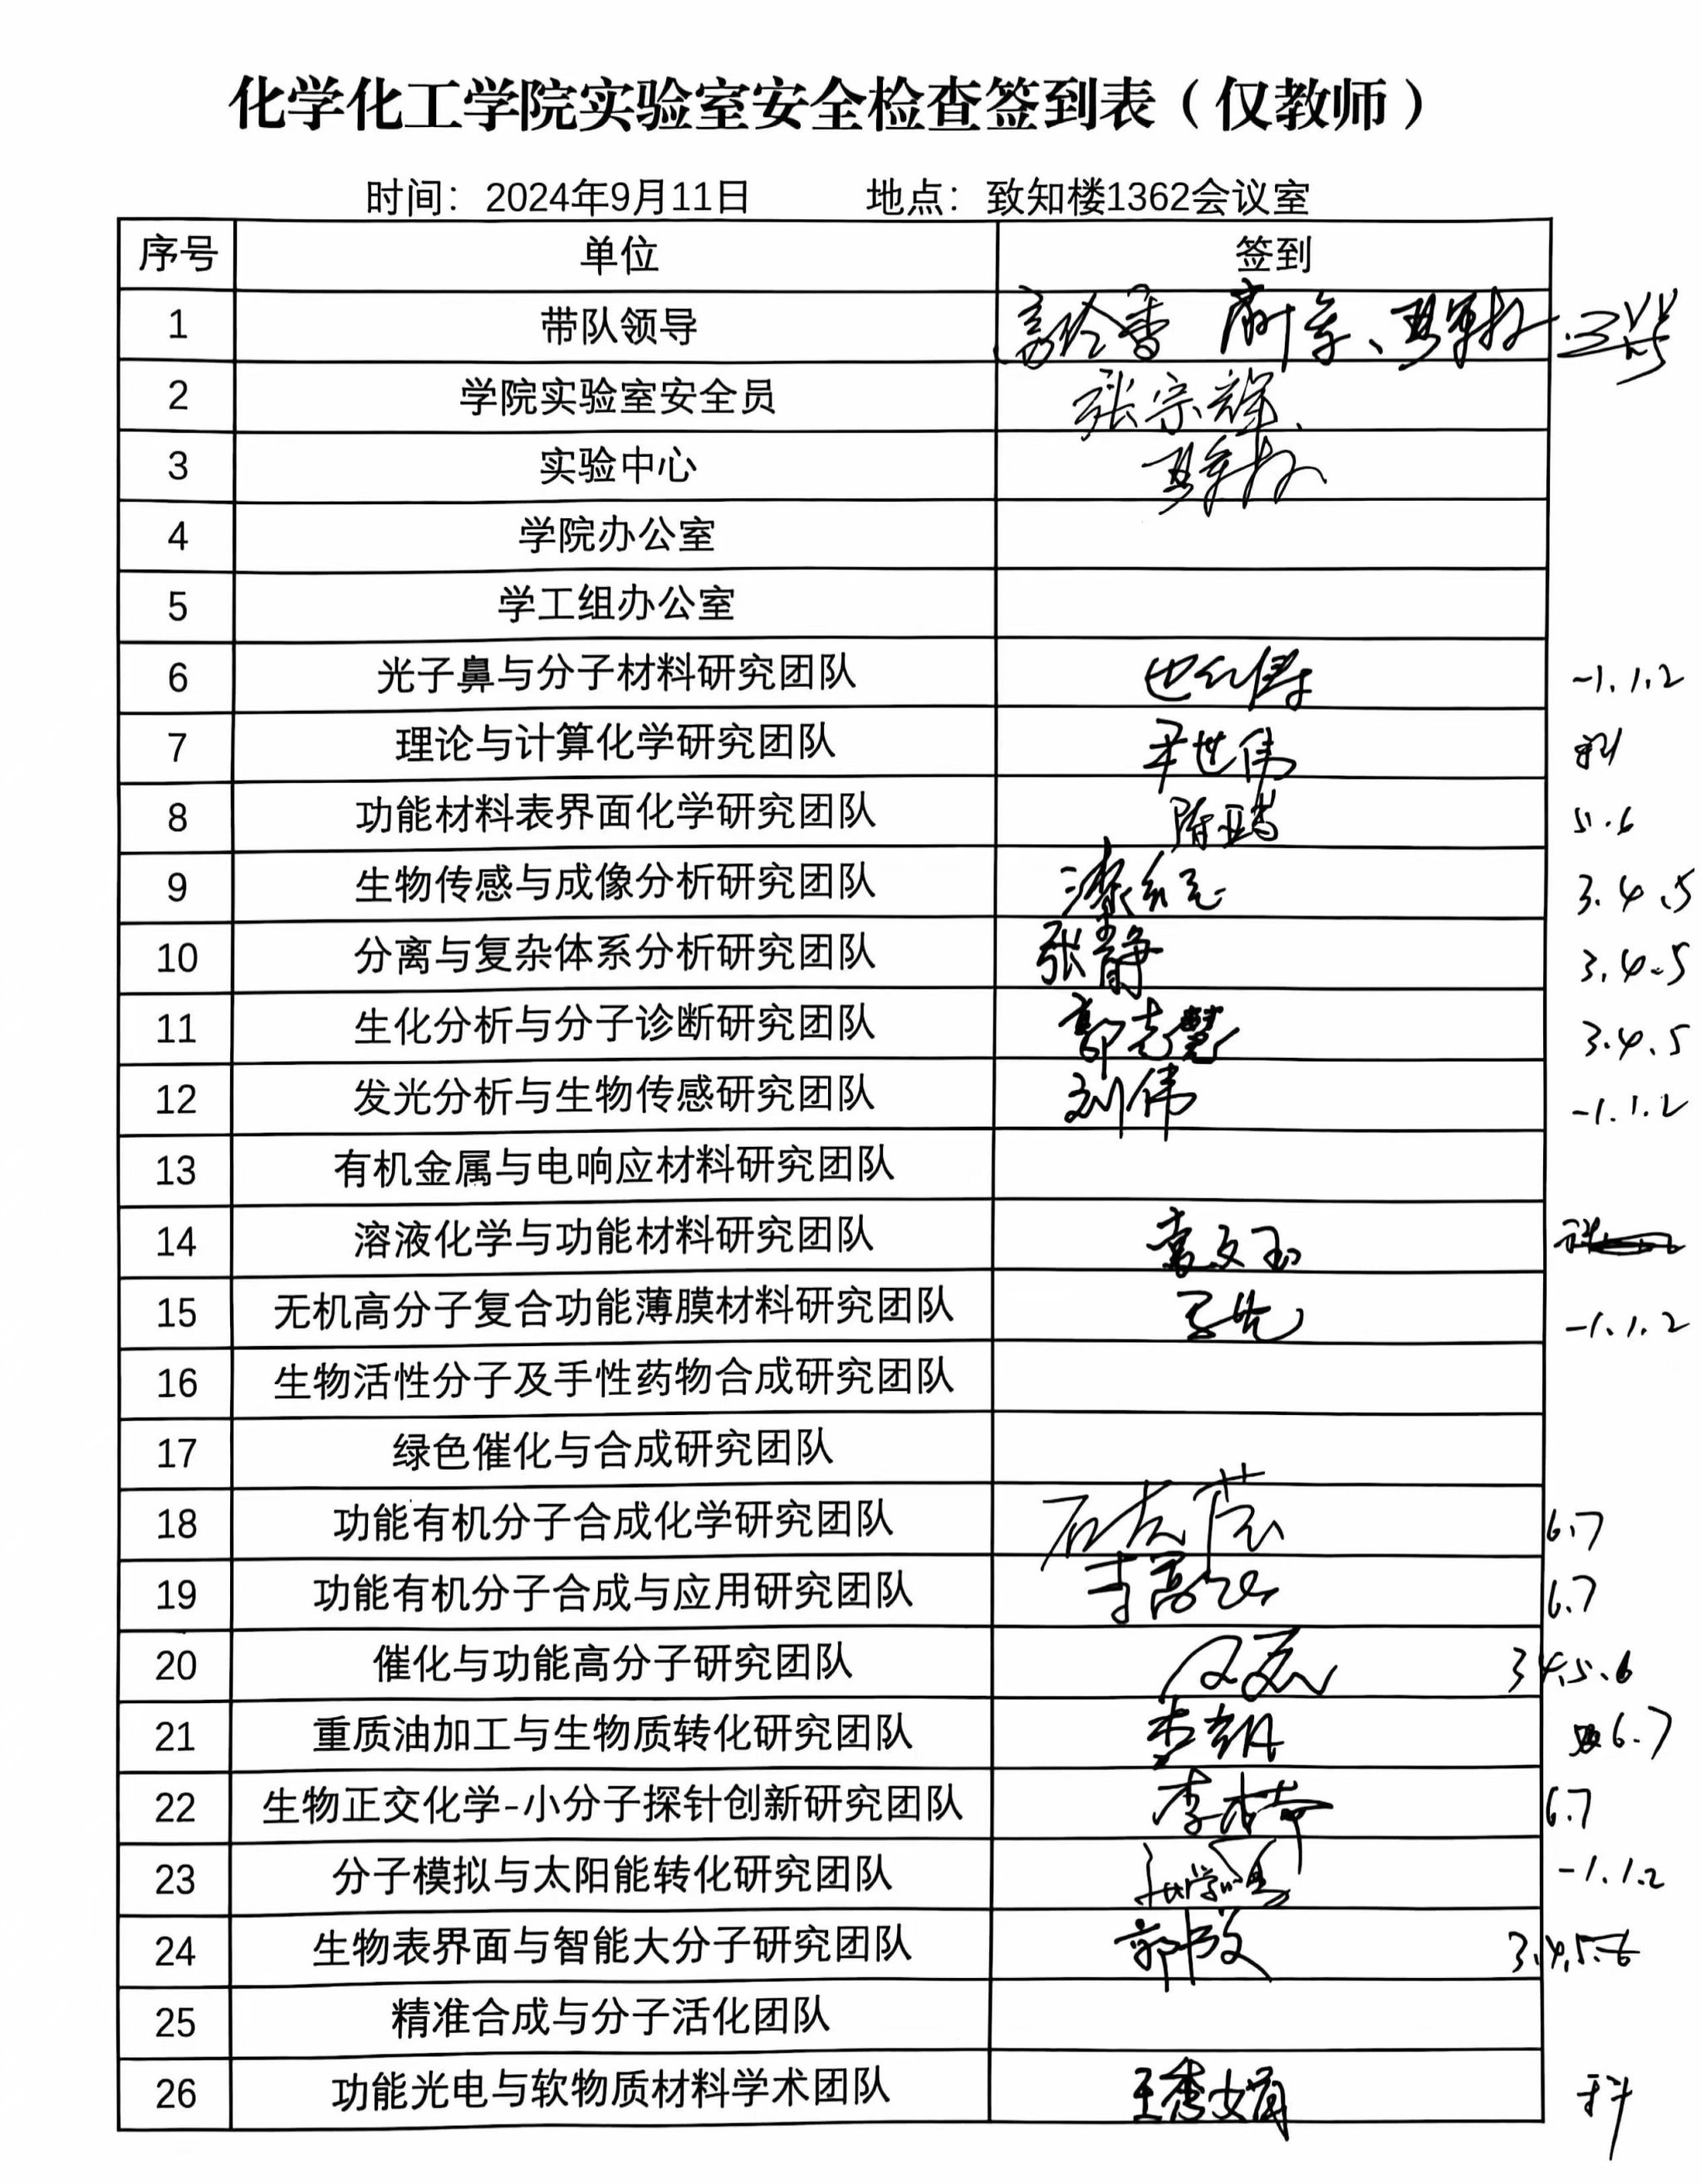 化学化工学院实验室安全检查签到表（仅教师）
时间：2024年9月11日 地点：致知楼1362会议室
序号 单位 签到
1 带队领导
2 学院实验室安全员 张宗辉
3 实验中心
4 学院办公室
5 学工组办公室
6 光子鼻与分子材料研究团队 -1.1.2
7 理论与计算化学研究团队 尹世伟
8 功能材料表界面化学研究团队 陈亚芍 5.6
9 生物传感与成像分析研究团队 漆红兰 3.4.5
10 分离与复杂体系分析研究团队 张静 3.4.5
11 生化分析与分子诊断研究团队 郭志慧 3.4.5
12 发光分析与生物传感研究团队 刘伟 -1.1.2
13 有机金属与电响应材料研究团队
14 溶液化学与功能材料研究团队 袁文玉
15 无机高分子复合功能薄膜材料研究团队 -1.1.2
16 生物活性分子及手性药物合成研究团队
17 绿色催化与合成研究团队
18 功能有机分子合成化学研究团队 6.7
19 功能有机分子合成与应用研究团队 6.7
20 催化与功能高分子研究团队 3.4.5.6
21 重质油加工与生物质转化研究团队 6.7
22 生物正交化学-小分子探针创新研究团队 6.7
23 分子模拟与太阳能转化研究团队 -1.1.2
24 生物表界面与智能大分子研究团队 3.4.5.6
25 精准合成与分子活化团队
26 功能光电与软物质材料学术团队 王秀娟 科